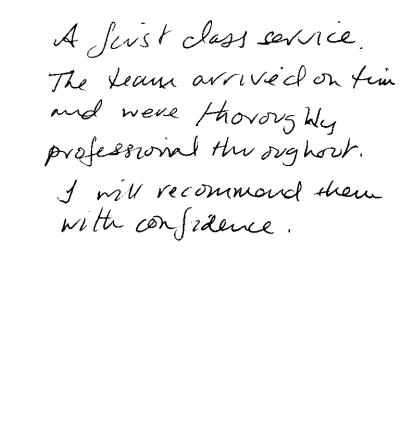 A first class service.
The team arrived on tim
and were thoroughly
professional throughout.
I will recommend them
with confidence.